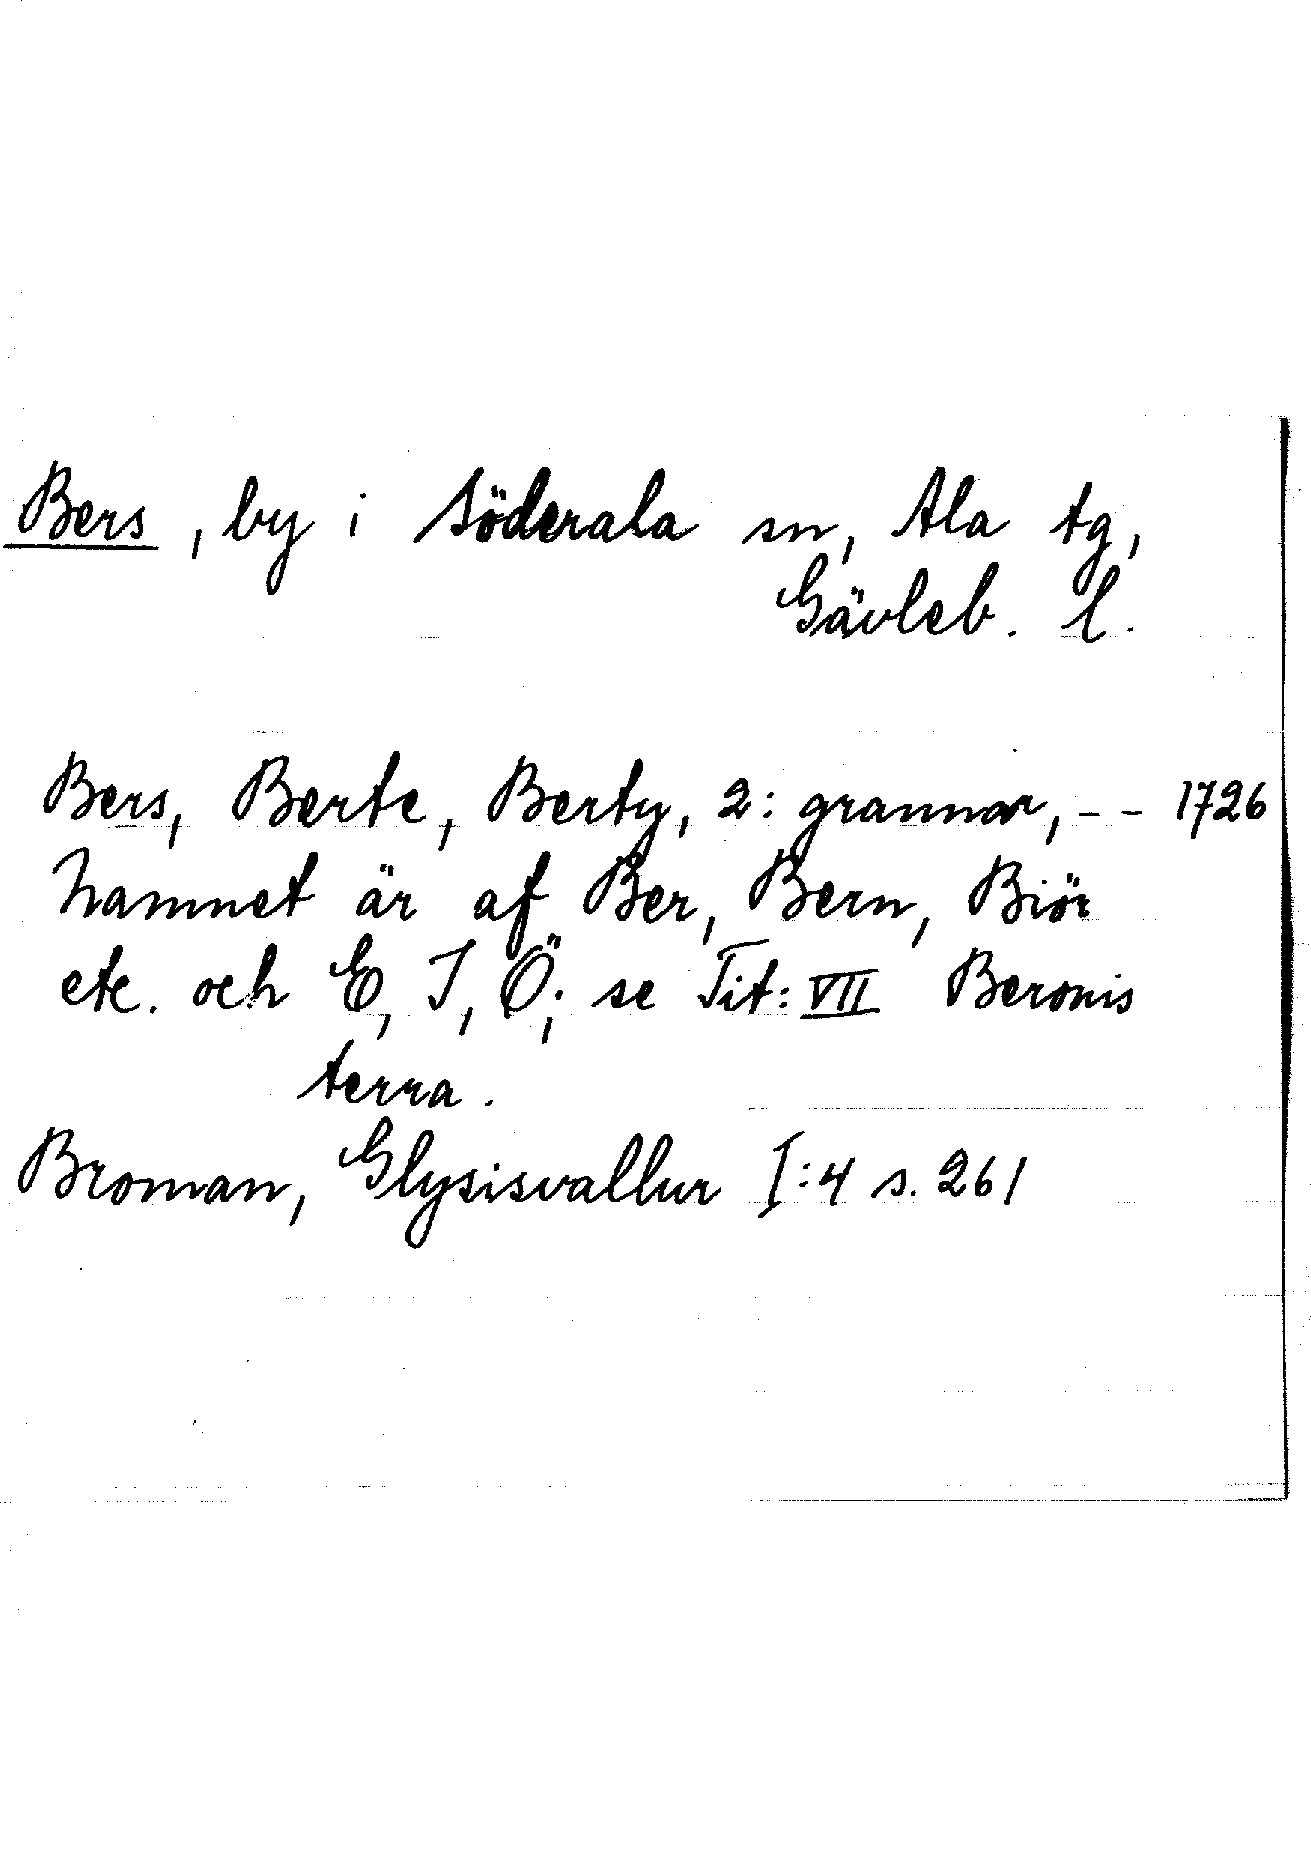 Bers, by i Söderala sn, Ala tg,
Gävleb. l.
Bers, Berte, Berty, 2: grannar, - - 1726
Namnet är af Ber, Bern, Biör
etc. och E, I, Ö; se Tit: VII Beronis
terra.
Broman, Glysisvallur I:4 s. 261